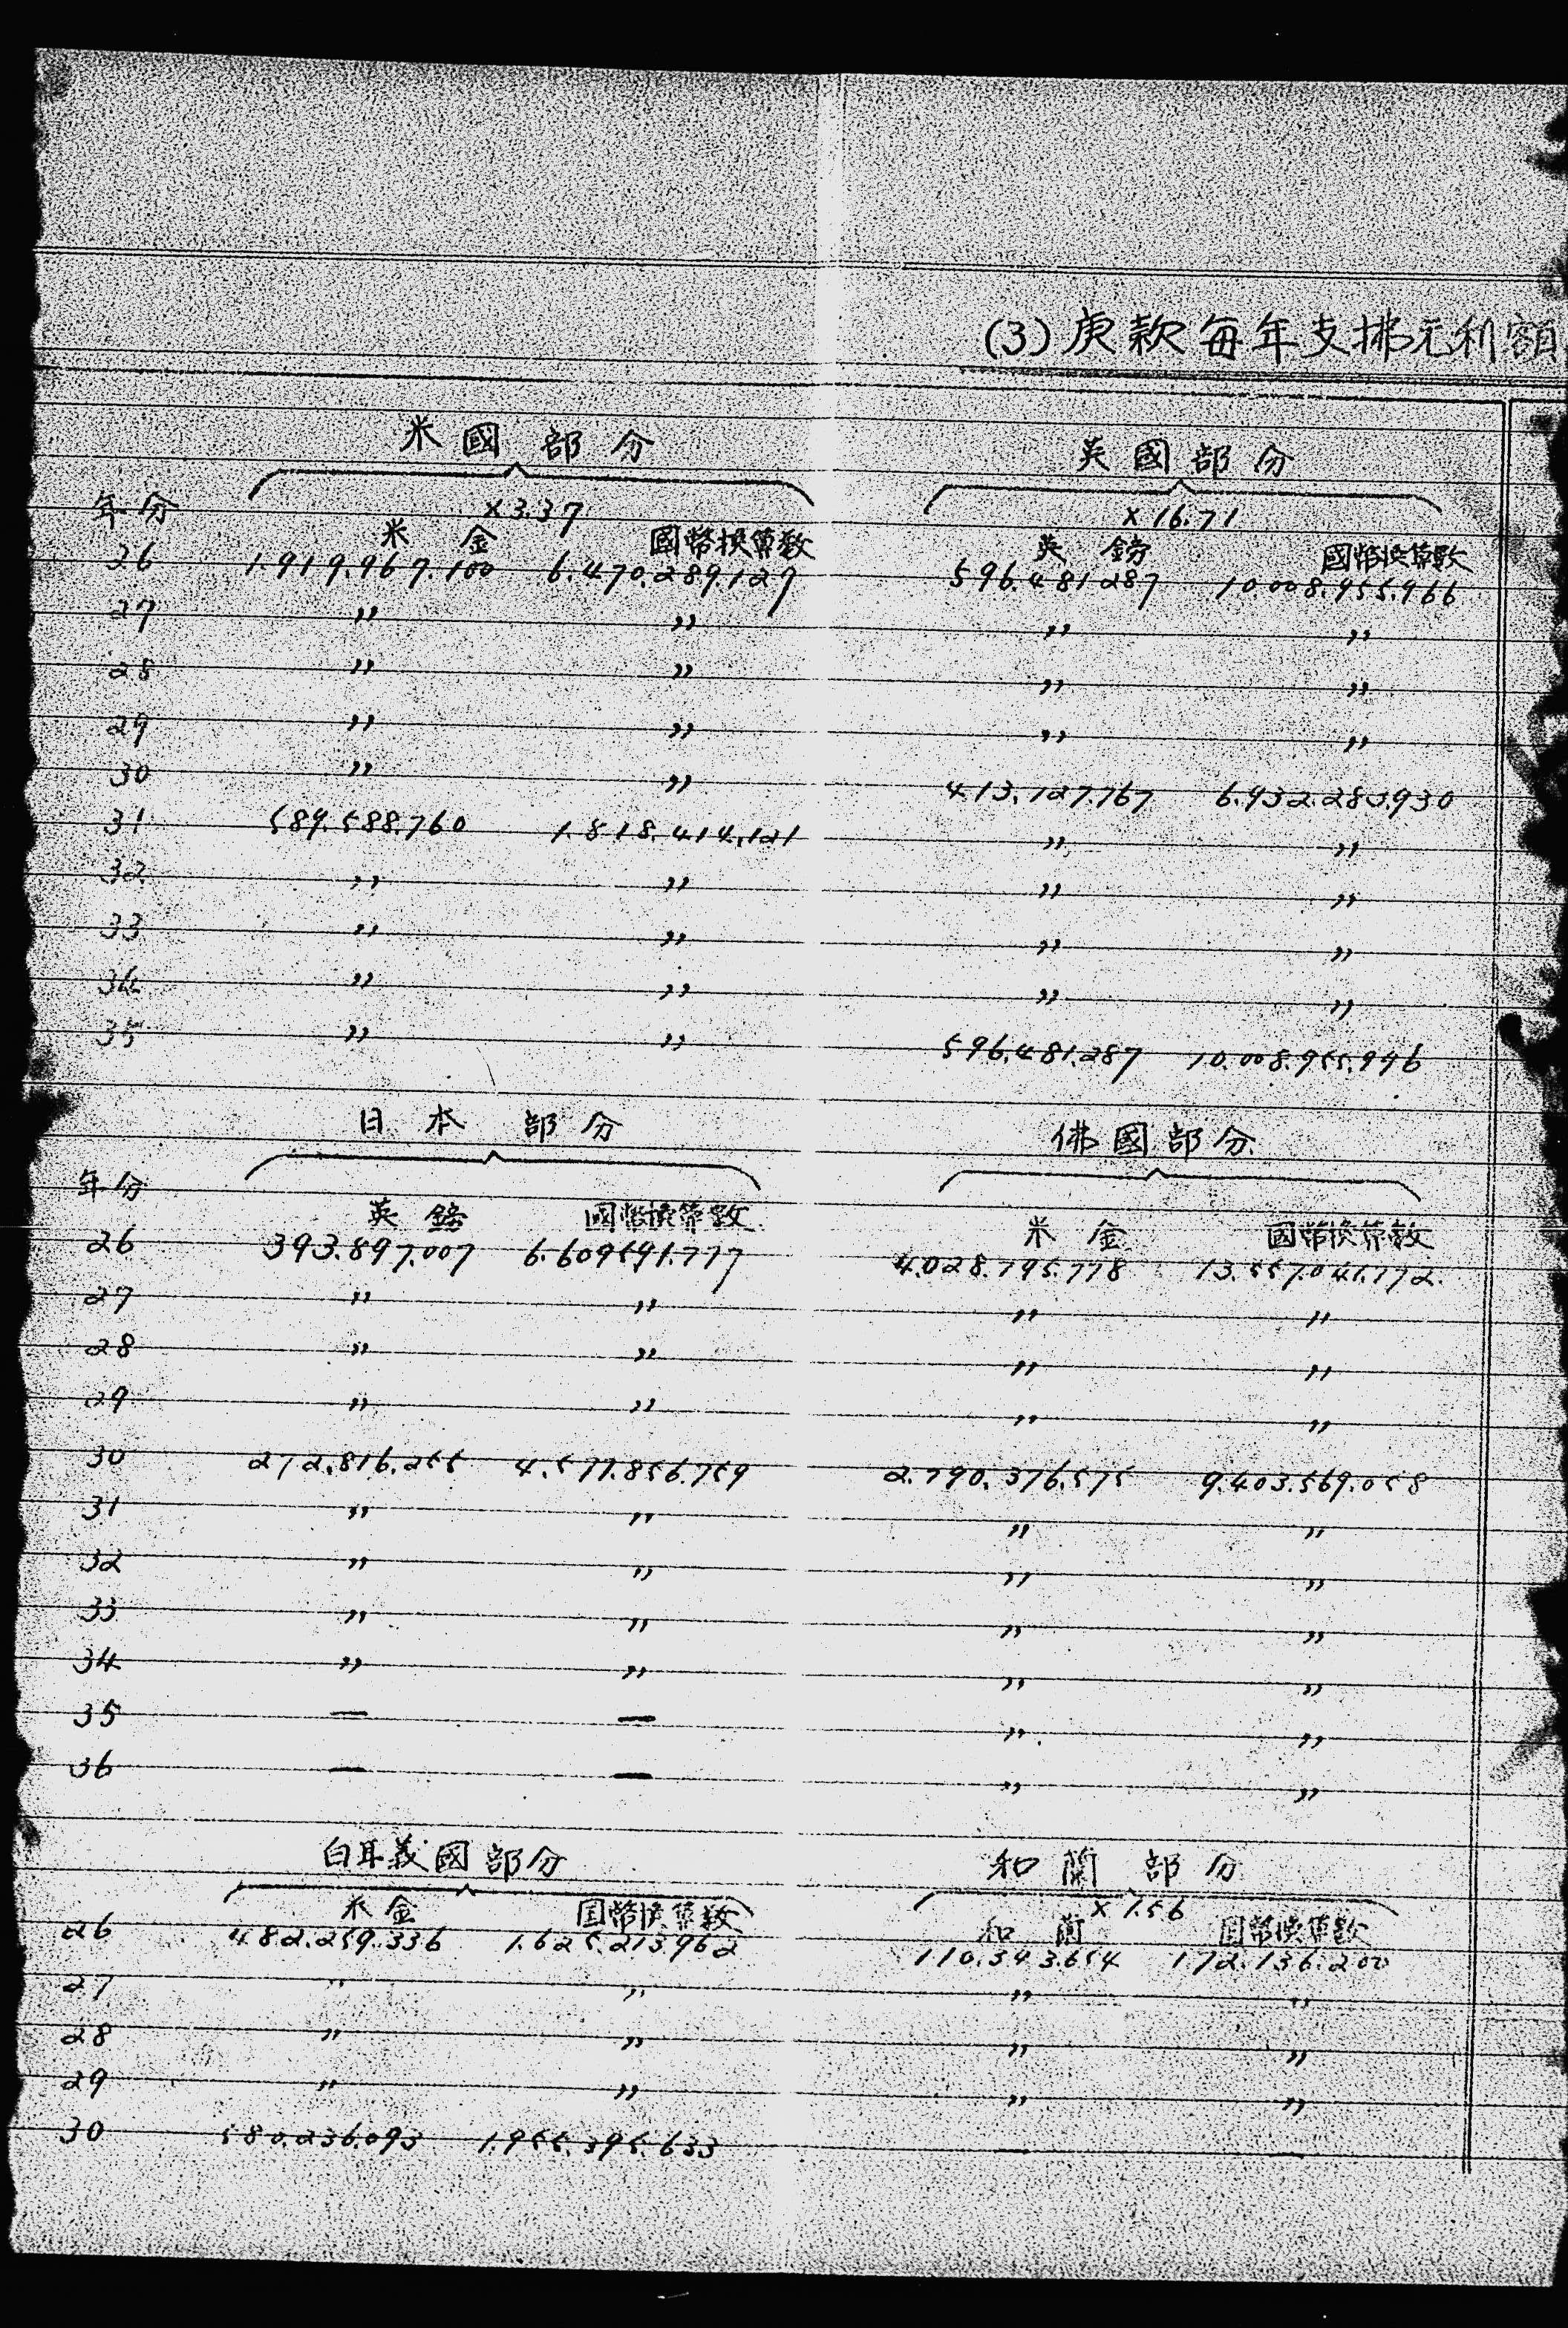 (3) 庚款每年支拂元利額
米國部分 英國部分
年分 ×3.37 ×16.71
米金 國幣換算数 英鎊 國幣換算数
26 1.919.967.100 6.470.289.127 596.481287 10.008.955.966
27 〃 〃 〃 〃
28 〃 〃 〃 〃
29 〃 〃 〃 〃
30 〃 〃 413.127.767 6.932.283.930
31 589.588.760 1.818.414.121 〃 〃
32 〃 〃 〃 〃
33 〃 〃 〃 〃
34 〃 〃 〃 〃
35 〃 〃 596.481.287 10.008.955.996
日本部分 佛國部分
年分
英鎊 國幣換算数 米金 國幣換算数
26 393.897.007 6.609591.777 4.028.795.778 13.557.041.772
27 〃 〃 〃 〃
28 〃 〃 〃 〃
29 〃 〃 〃 〃
30 272.816.255 4.577.856.759 2.790.376.575 9.403.569.058
31 〃 〃 〃 〃
32 〃 〃 〃 〃
33 〃 〃 〃 〃
34 〃 〃 〃 〃
35 — — 〃 〃
36 — — 〃 〃
白耳義國部分 和蘭部分
×1.56
米金 国幣換算数 和蘭 国幣換算数
26 482.259.336 1.625.213962 110.343.654 172.136.200
27 〃 〃 〃 〃
28 〃 〃 〃 〃
29 〃 〃 〃 〃
30 580.236.093 1.955.395.633 — —